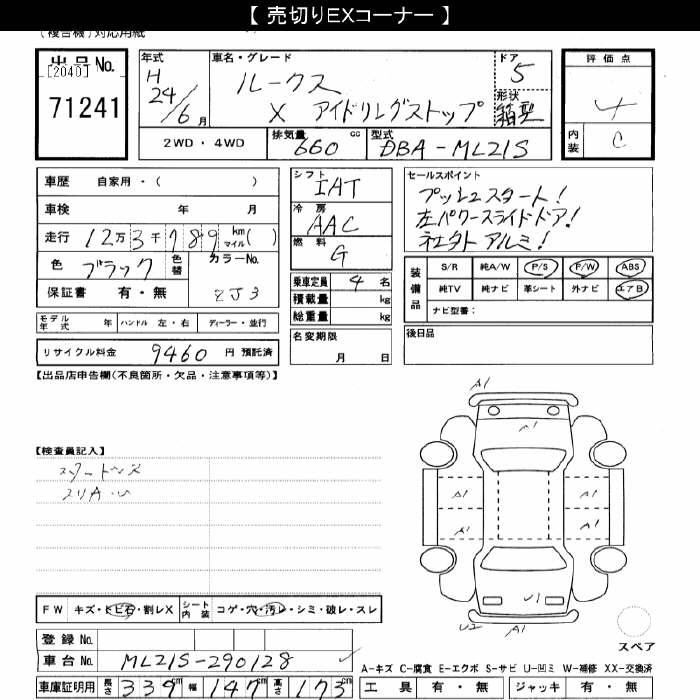 【 売切りEXコーナー 】
(複合機)対応用紙
出品No.
[2040]
71241
年式 H 24/6月
車名・グレード
ルークス
X アイドリングストップ
ドア 5
形状 箱型
2WD・4WD
排気量 660 cc
型式 DBA-ML21S
評価点
内装 C
車歴 自家用・( )
車検 年 月
走行 12万3千789 km マイル( )
色 ブラック 色替 カラーNo.
保証書 有・無 ZJ3
シフト IAT
冷房 AAC
燃料 G
乗車定員 4名
積載量 kg
総重量 kg
セールスポイント
プッシュスタート!
左パワースライドドア!
社外アルミ!
装備品
S/R 純A/W P/S P/W ABS
純TV 純ナビ 革シート 外ナビ エアB
ナビ型番:
モデル年式 年 ハンドル 左・右 ディーラー・並行
名変期限 月 日
後日品
リサイクル料金 9460 円 預託済
【出品店申告欄(不良箇所・欠品・注意事項等)】
A1
A1
【検査員記入】
スリA・U
A1 A1
A1 A1
U1
U2 A1
FW キズ・トビ石・割レX シート内装 コゲ・穴・汚レ・シミ・破レ・スレ
登録No.
スペア
車台No. ML21S-290128
A-キズ C-腐食 E-エクボ S-サビ U-凹ミ W-補修 XX-交換済
車庫証明用 長さ 339cm 幅 147cm 高さ 173cm
工具 有・無 ジャッキ 有・無